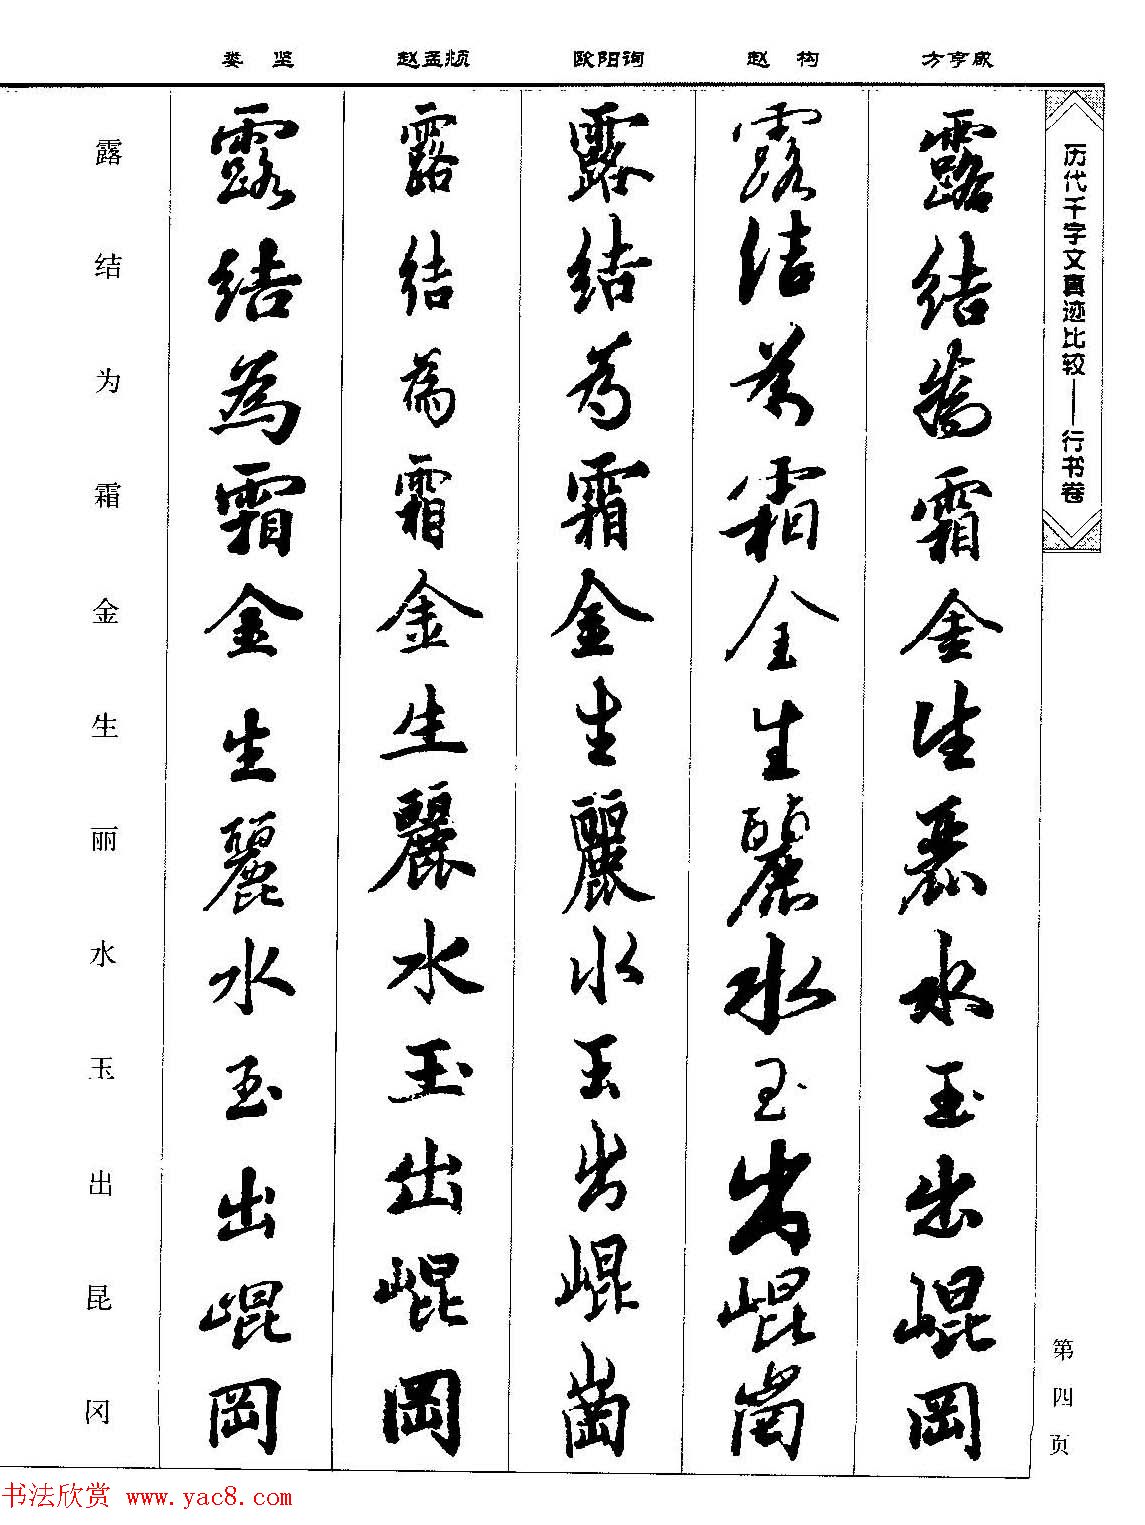 娄坚 赵孟頫 欧阳询 赵构 方亨咸
历代千字文真迹比较——行书卷
露結為霜金生麗水玉出崐岡
露結為霜金生麗水玉出崐崗
露結為霜金生麗水玉出崐崗
露結為霜金生麗水玉出崐岡
露結為霜金生麗水玉出崐岡
露结为霜金生丽水玉出昆冈
第四页
书法欣赏 www.yac8.com